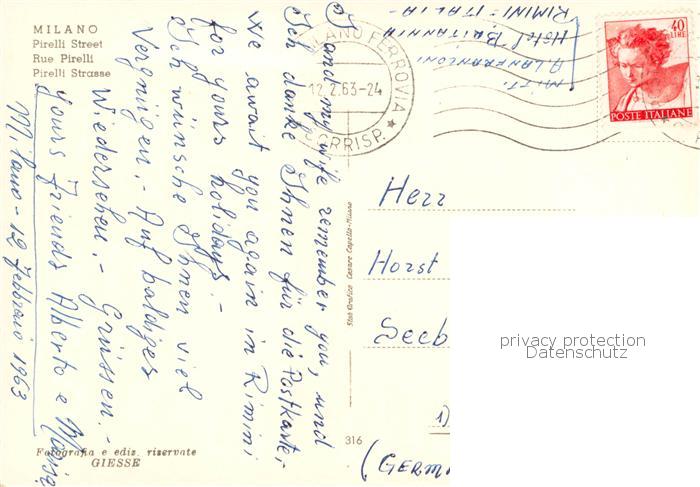 MILANO
Pirelli Street
Rue Pirelli
Pirelli Strasse
I and my wife remember you, und
Ich danke Ihnen für die Postkarte,
we await you again in Rimini
for yours holidays.-
Ich wünsche Ihnen viel
Vergnügen.- Auf baldiges
Wiedersehen.- Grüssen.-
Yours Friends Alberto e Marisa
Milano - 12 Febbraio 1963
MITT.
A. LANFRANCONI
Hotel BRITANNIA
RIMINI-ITALIA-
MILANO FERROVIA
12.2.63-24
CORRISP.
40
LIRE
POSTE ITALIANE
Herr
Horst
Seeb
(GERM
privacy protection
Datenschutz
Stab. Grafico Cesare Capello-Milano
316
Fotografia e ediz. riservate
GIESSE